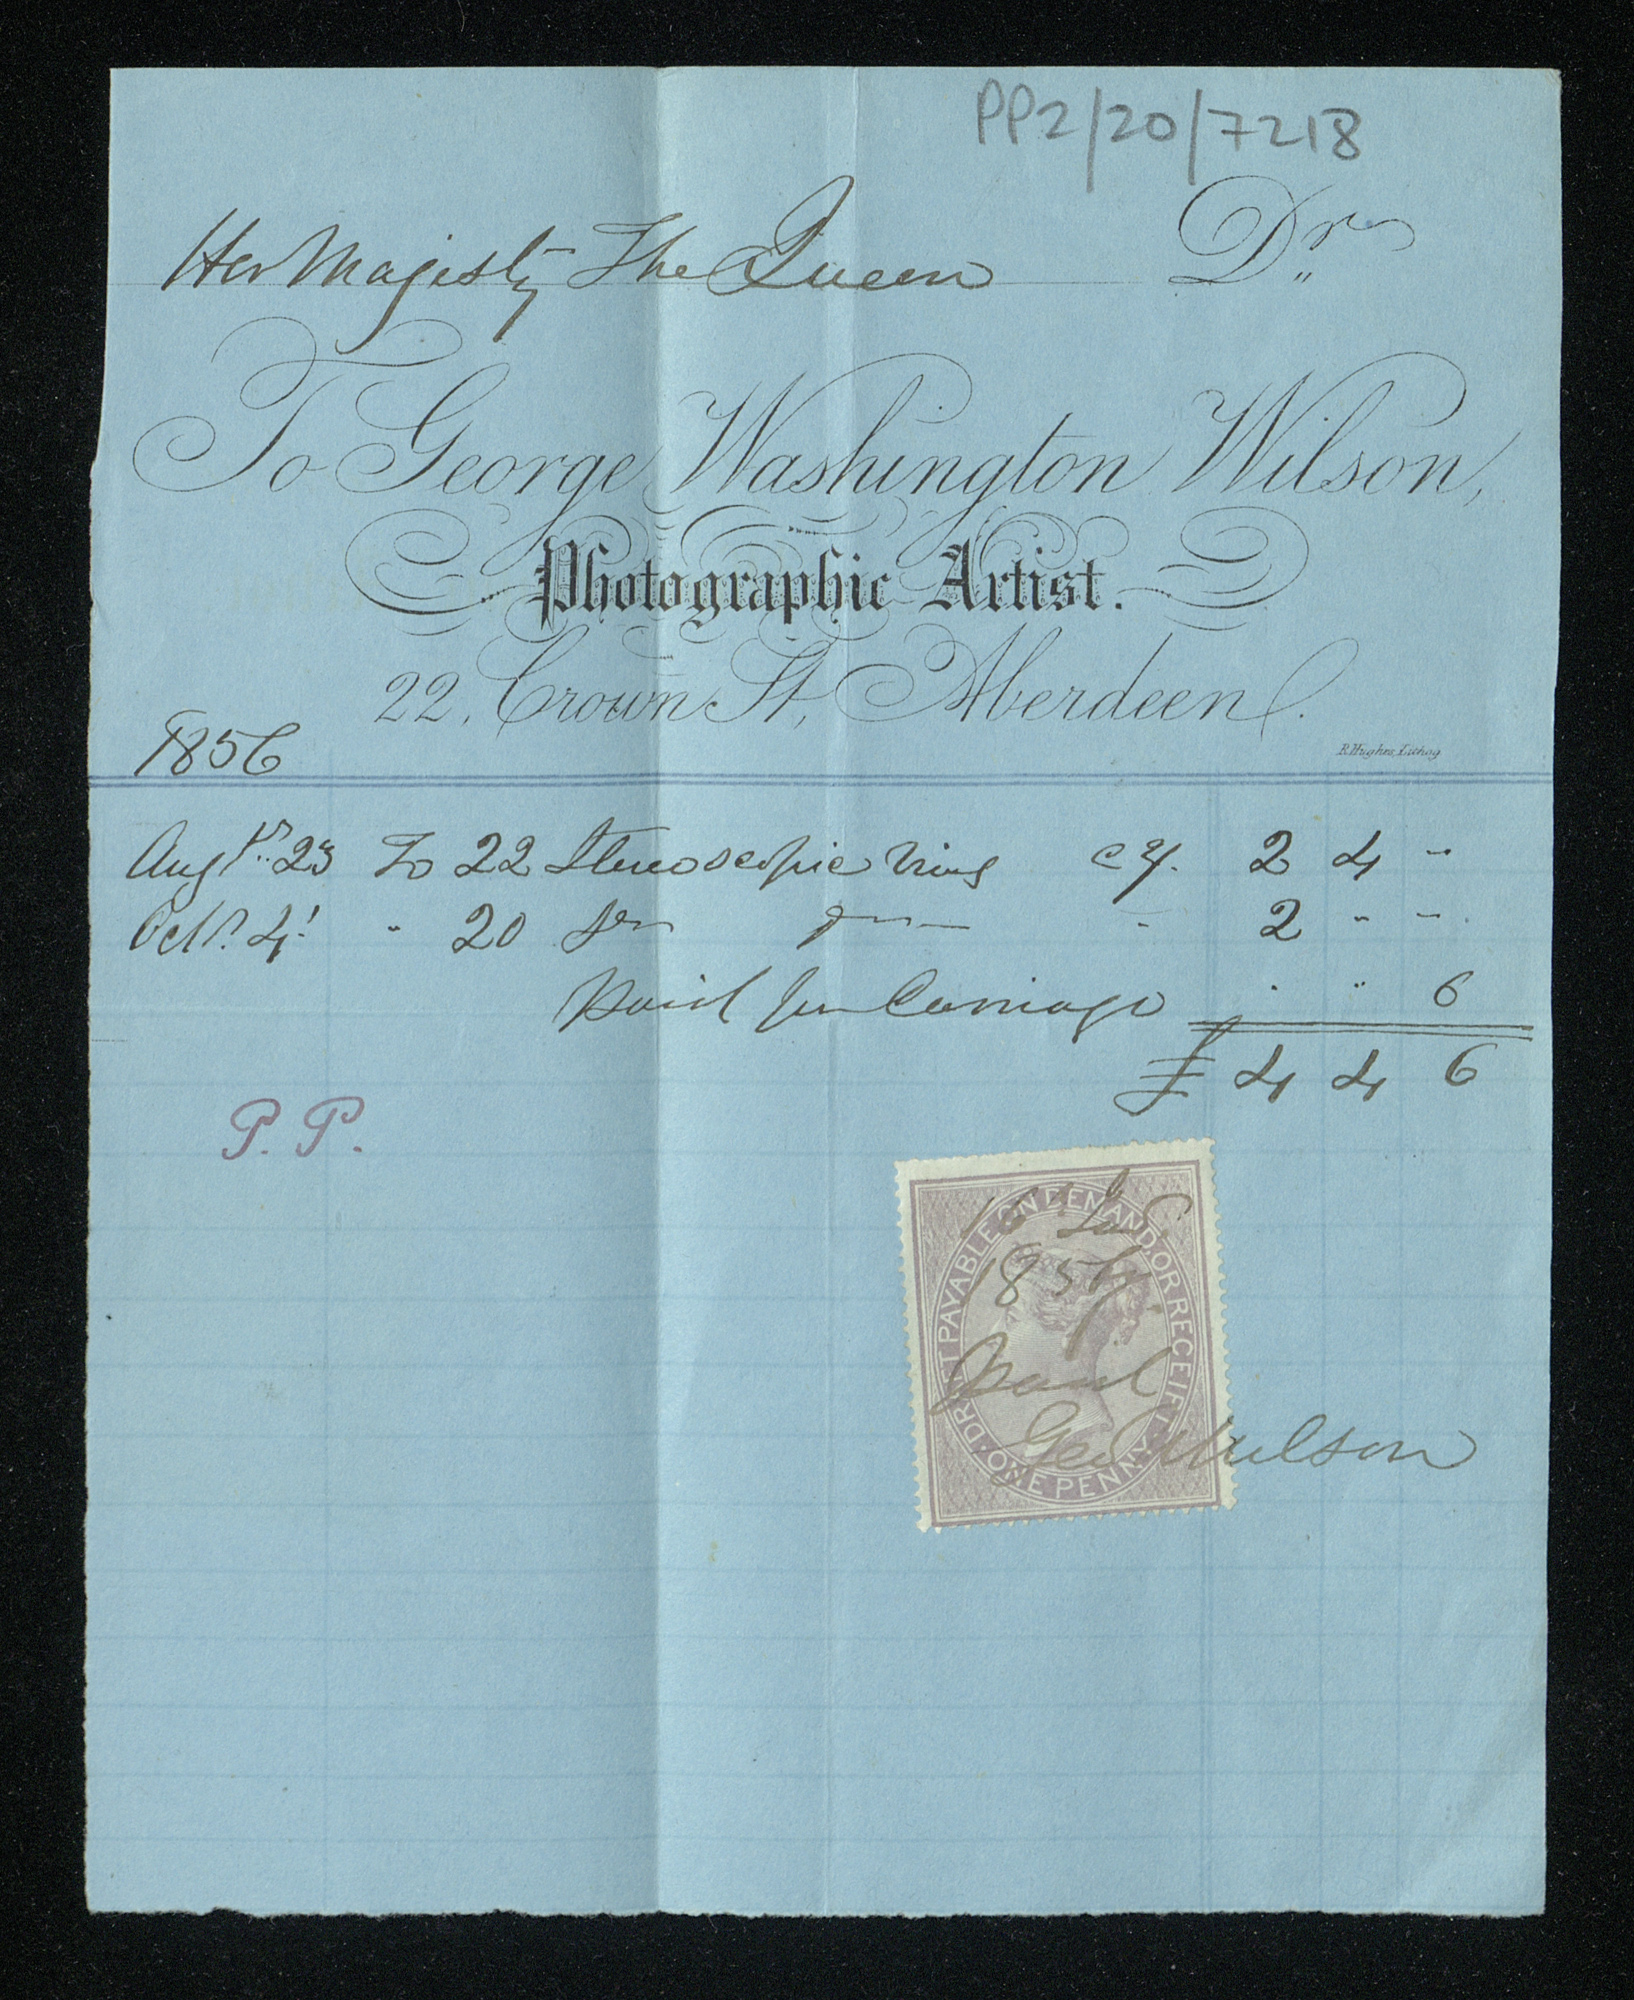 PP2/20/7218
Her Majesty The Queen Dr
To George Washington Wilson,
Photographic Artist.
22, Crown St, Aberdeen.
R. Hughes, Lithog
1856
Augt. 23 To 22 Stereoscopic Views 2/ 2 4 "
Octr. 4 " 20 " 2 " "
Paid for Carriage " " 6
£ 4 4 6
P. P.
DRAFT PAYABLE ON DEMAND, OR RECEIPT.
ONE PENNY.
16
185
Paid
Geo W Wilson